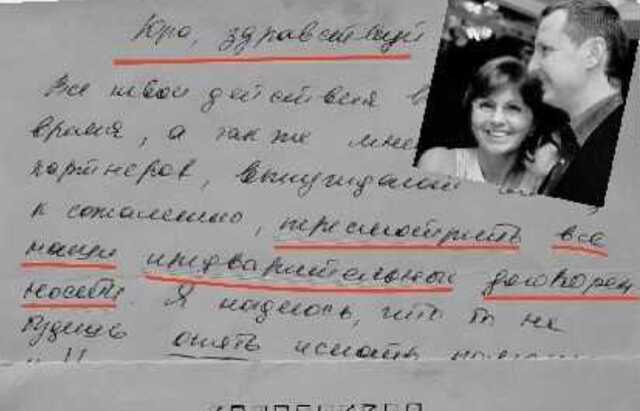 Юра, здравствуй
Все твои действия в
время, а так же мне
партнеров, вынуждают
к сожалению, пересмотреть все
наши предварительные договорен
ности. Я надеюсь, что ты не
будешь опять искать